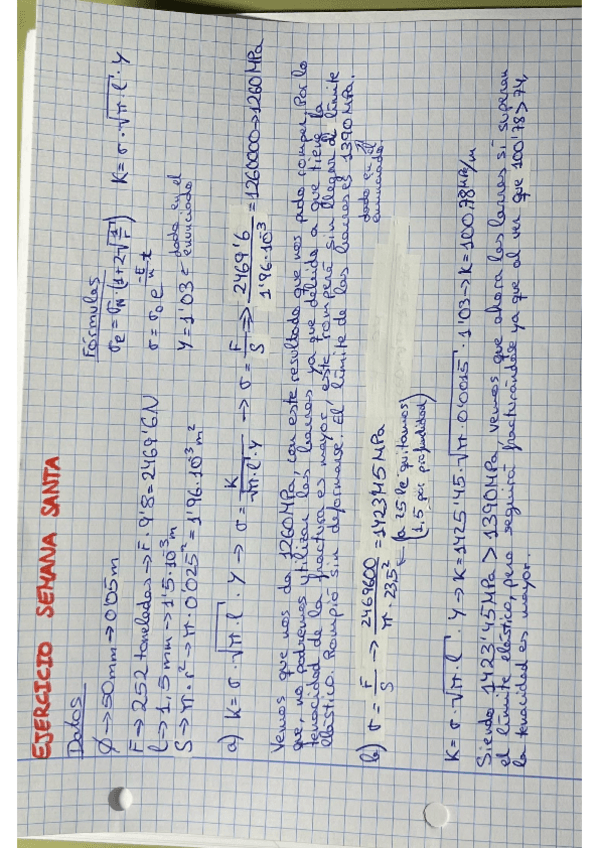 EJERCICIO SEMANA SANTA
Datos
Ø→50mm→0'05m
F→252 toneladas→F·9'8=2469'6N
l→1,5mm→1'5·10⁻³m
S→π·r²→π·0'025²=1'96·10⁻³m²
Fórmulas
K=σ·√π·l·Y
Y=1'03=dado en el enunciado
a) K=σ·√π·l·Y→σ=K/√π·l·Y→σ=F/S⇒2469'6/1'96·10⁻³=1260000→1260MPa
Vemos que nos da 1260MPa, con este resultado que nos pudo romper. Por lo
que, no podremos utilizar las barras ya que debido a que tiene la
tenacidad de la fractura es mayor, este romperá sin llegar al límite
elástico. Rompió sin deformarse. El límite de las barras es 1390MPa.
dado en el
enunciado.
b) σ=F/S→2469600/π·23,5²=1423'45MPa
(a 25 le quitamos
1,5 por profundidad)
K=σ·√π·l·Y→K=1425'45·√π·0'0015·1'03→K=100'78MPa/m
Siendo 1423'45MPa>1390MPa, vemos que ahora las barras si superan
el límite elástico, pero seguirá fracturándose ya que al ver que 100'78>74,
la tenacidad es mayor.